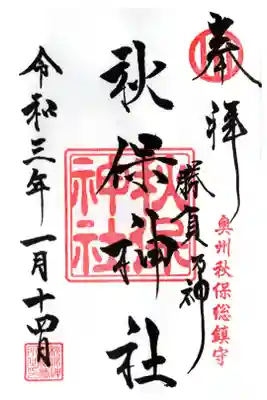 奉拝
奥州秋保総鎮守
勝負の神
秋保神社
秋保
神社
令和三年一月十四日